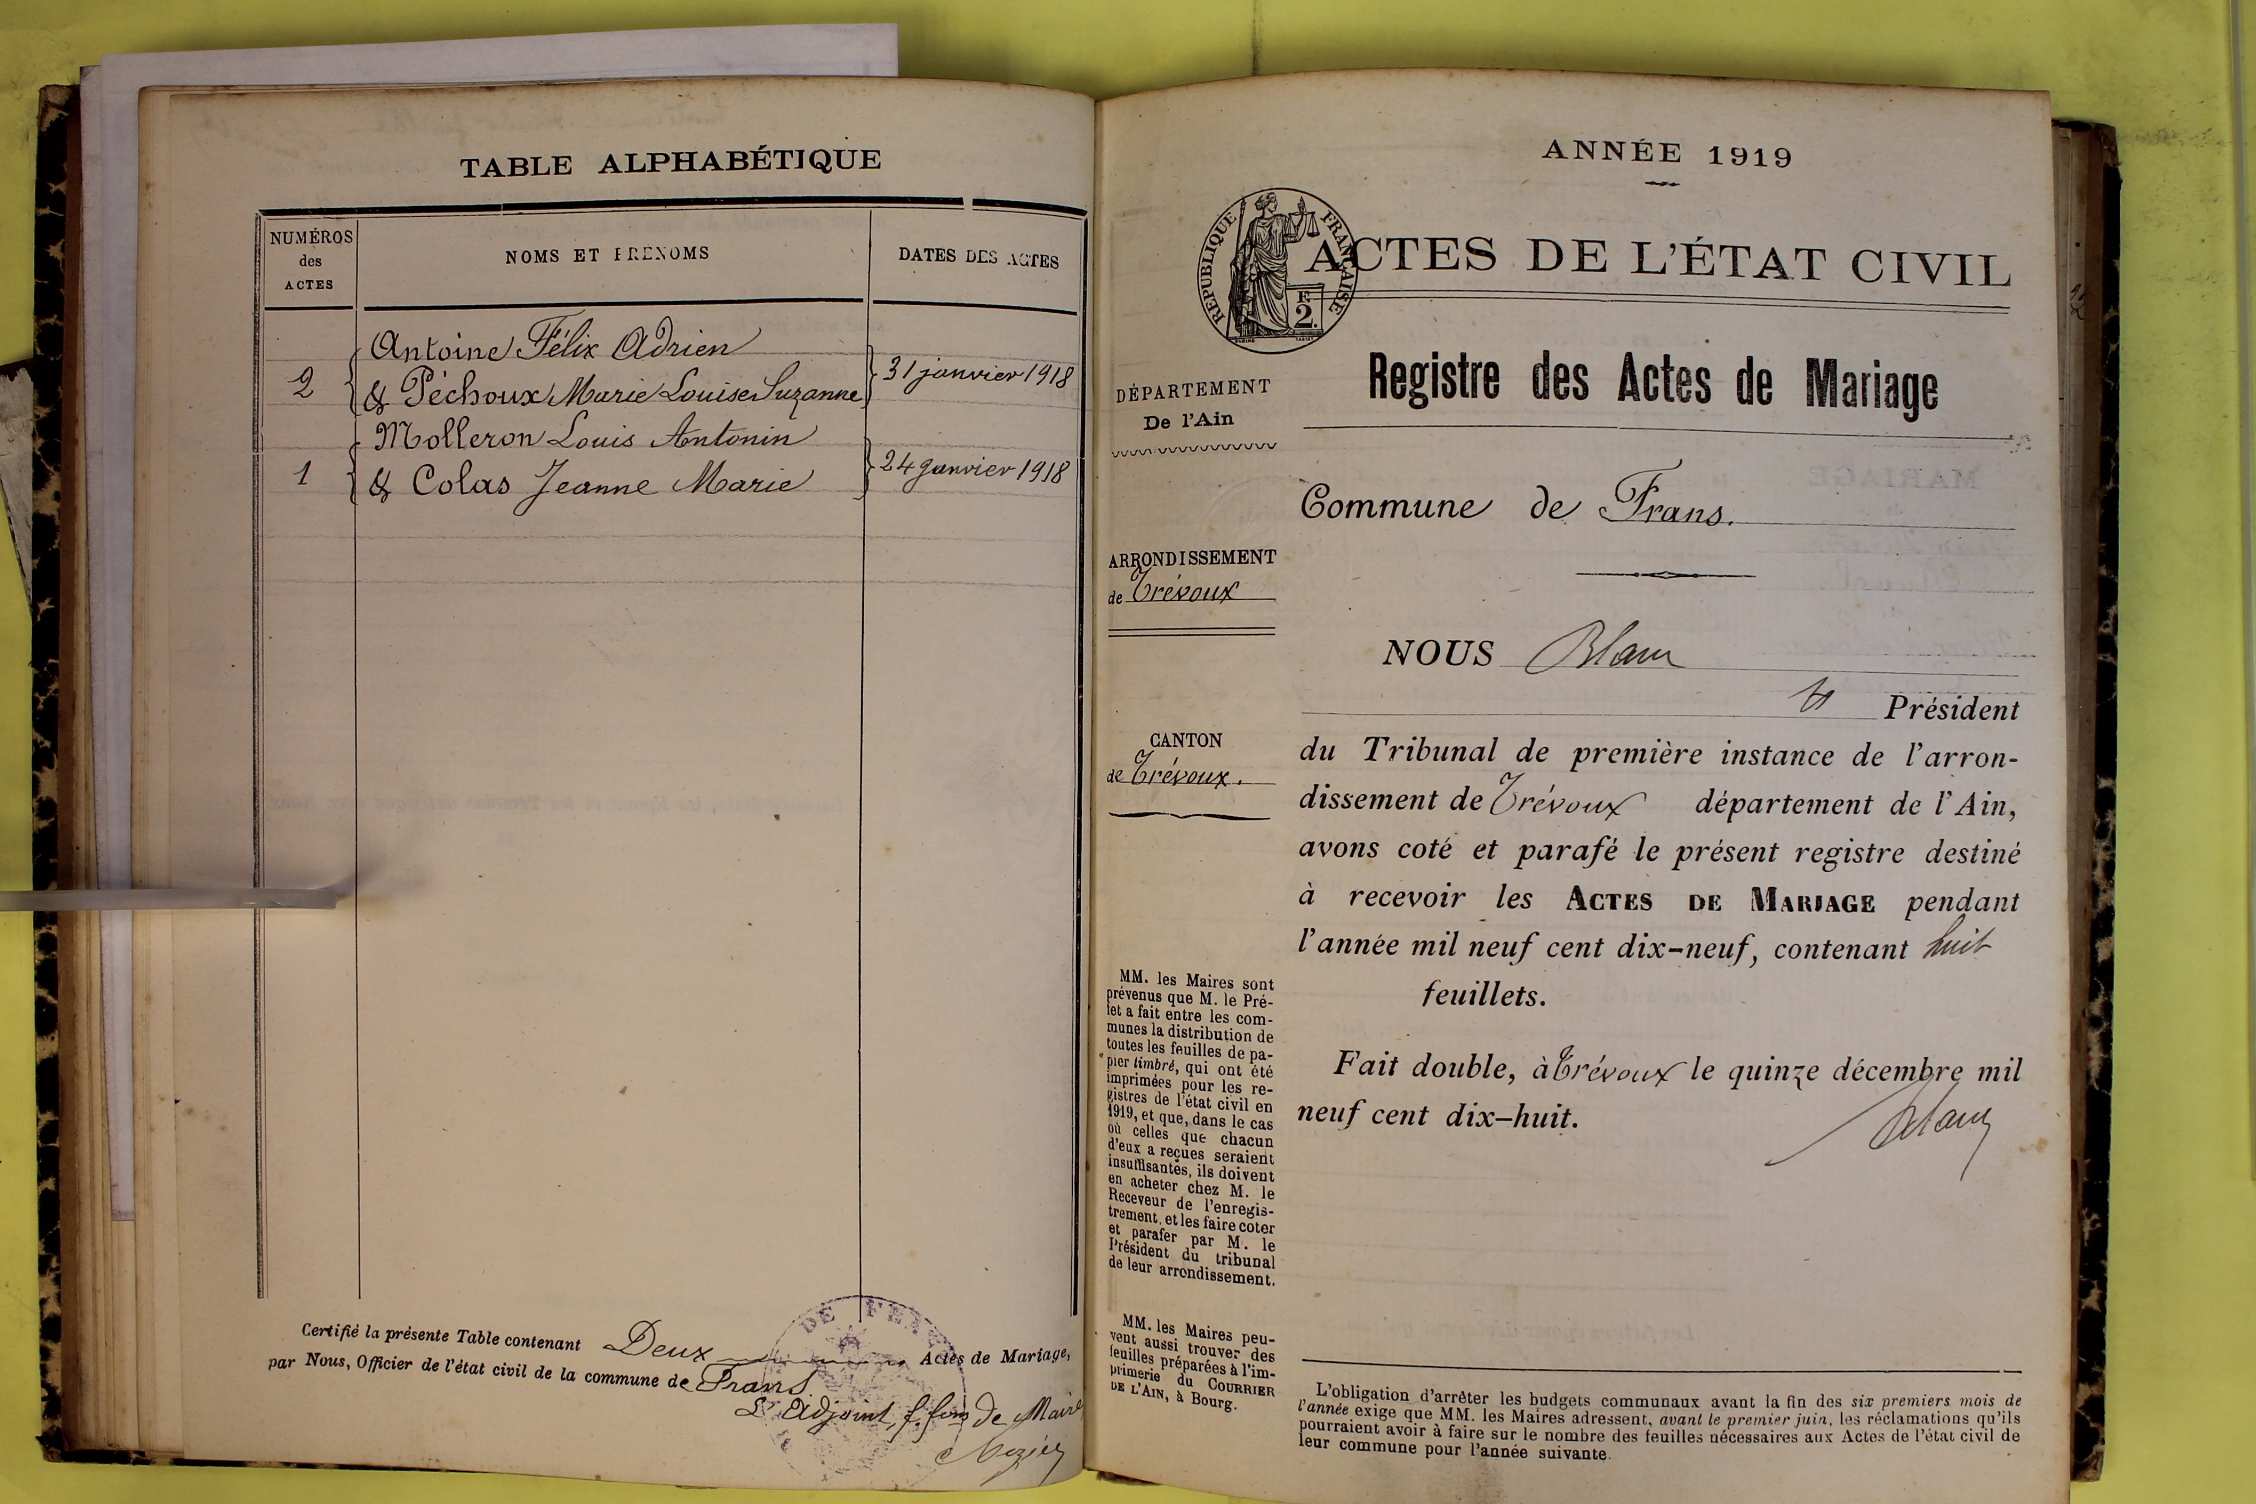 TABLE ALPHABÉTIQUE
NUMÉROS
des
ACTES
NOMS ET PRENOMS
DATES DES ACTES
Antoine Félix Adrien
2 & Péchoux Marie Louise Suzanne 31 janvier 1918
Molleron Louis Antonin
1 & Colas Jeanne Marie 24 janvier 1918
Certifié la présente Table contenant Deux Actes de Mariage,
par Nous, Officier de l'état civil de la commune de Frans
L'Adjoint, f. fons de Maire
ANNÉE 1919
RÉPUBLIQUE FRANÇAISE
F.
2.
ACTES DE L'ÉTAT CIVIL
Registre des Actes de Mariage
DÉPARTEMENT
De l'Ain
Commune de Frans.
ARRONDISSEMENT
de Trévoux
CANTON
de Trévoux.
NOUS
Président
du Tribunal de première instance de l'arron-
dissement de Trévoux département de l'Ain,
avons coté et parafé le présent registre destiné
à recevoir les ACTES DE MARIAGE pendant
l'année mil neuf cent dix-neuf, contenant huit
feuillets.
Fait double, à Trévoux le quinze décembre mil
neuf cent dix-huit.
MM. les Maires sont
prévenus que M. le Pré-
fet a fait entre les com-
munes la distribution de
toutes les feuilles de pa-
pier timbré, qui ont été
imprimées pour les re-
gistres de l'état civil en
1919, et que, dans le cas
où celles que chacun
d'eux a reçues seraient
insuffisantes, ils doivent
en acheter chez M. le
Receveur de l'enregis-
trement, et les faire coter
et parafer par M. le
Président du tribunal
de leur arrondissement.
MM. les Maires peu-
vent aussi trouver des
feuilles préparées à l'im-
primerie du COURRIER
DE L'AIN, à Bourg.
L'obligation d'arrêter les budgets communaux avant la fin des six premiers mois de
l'année exige que MM. les Maires adressent, avant le premier juin, les réclamations qu'ils
pourraient avoir à faire sur le nombre des feuilles nécessaires aux Actes de l'état civil de
leur commune pour l'année suivante.